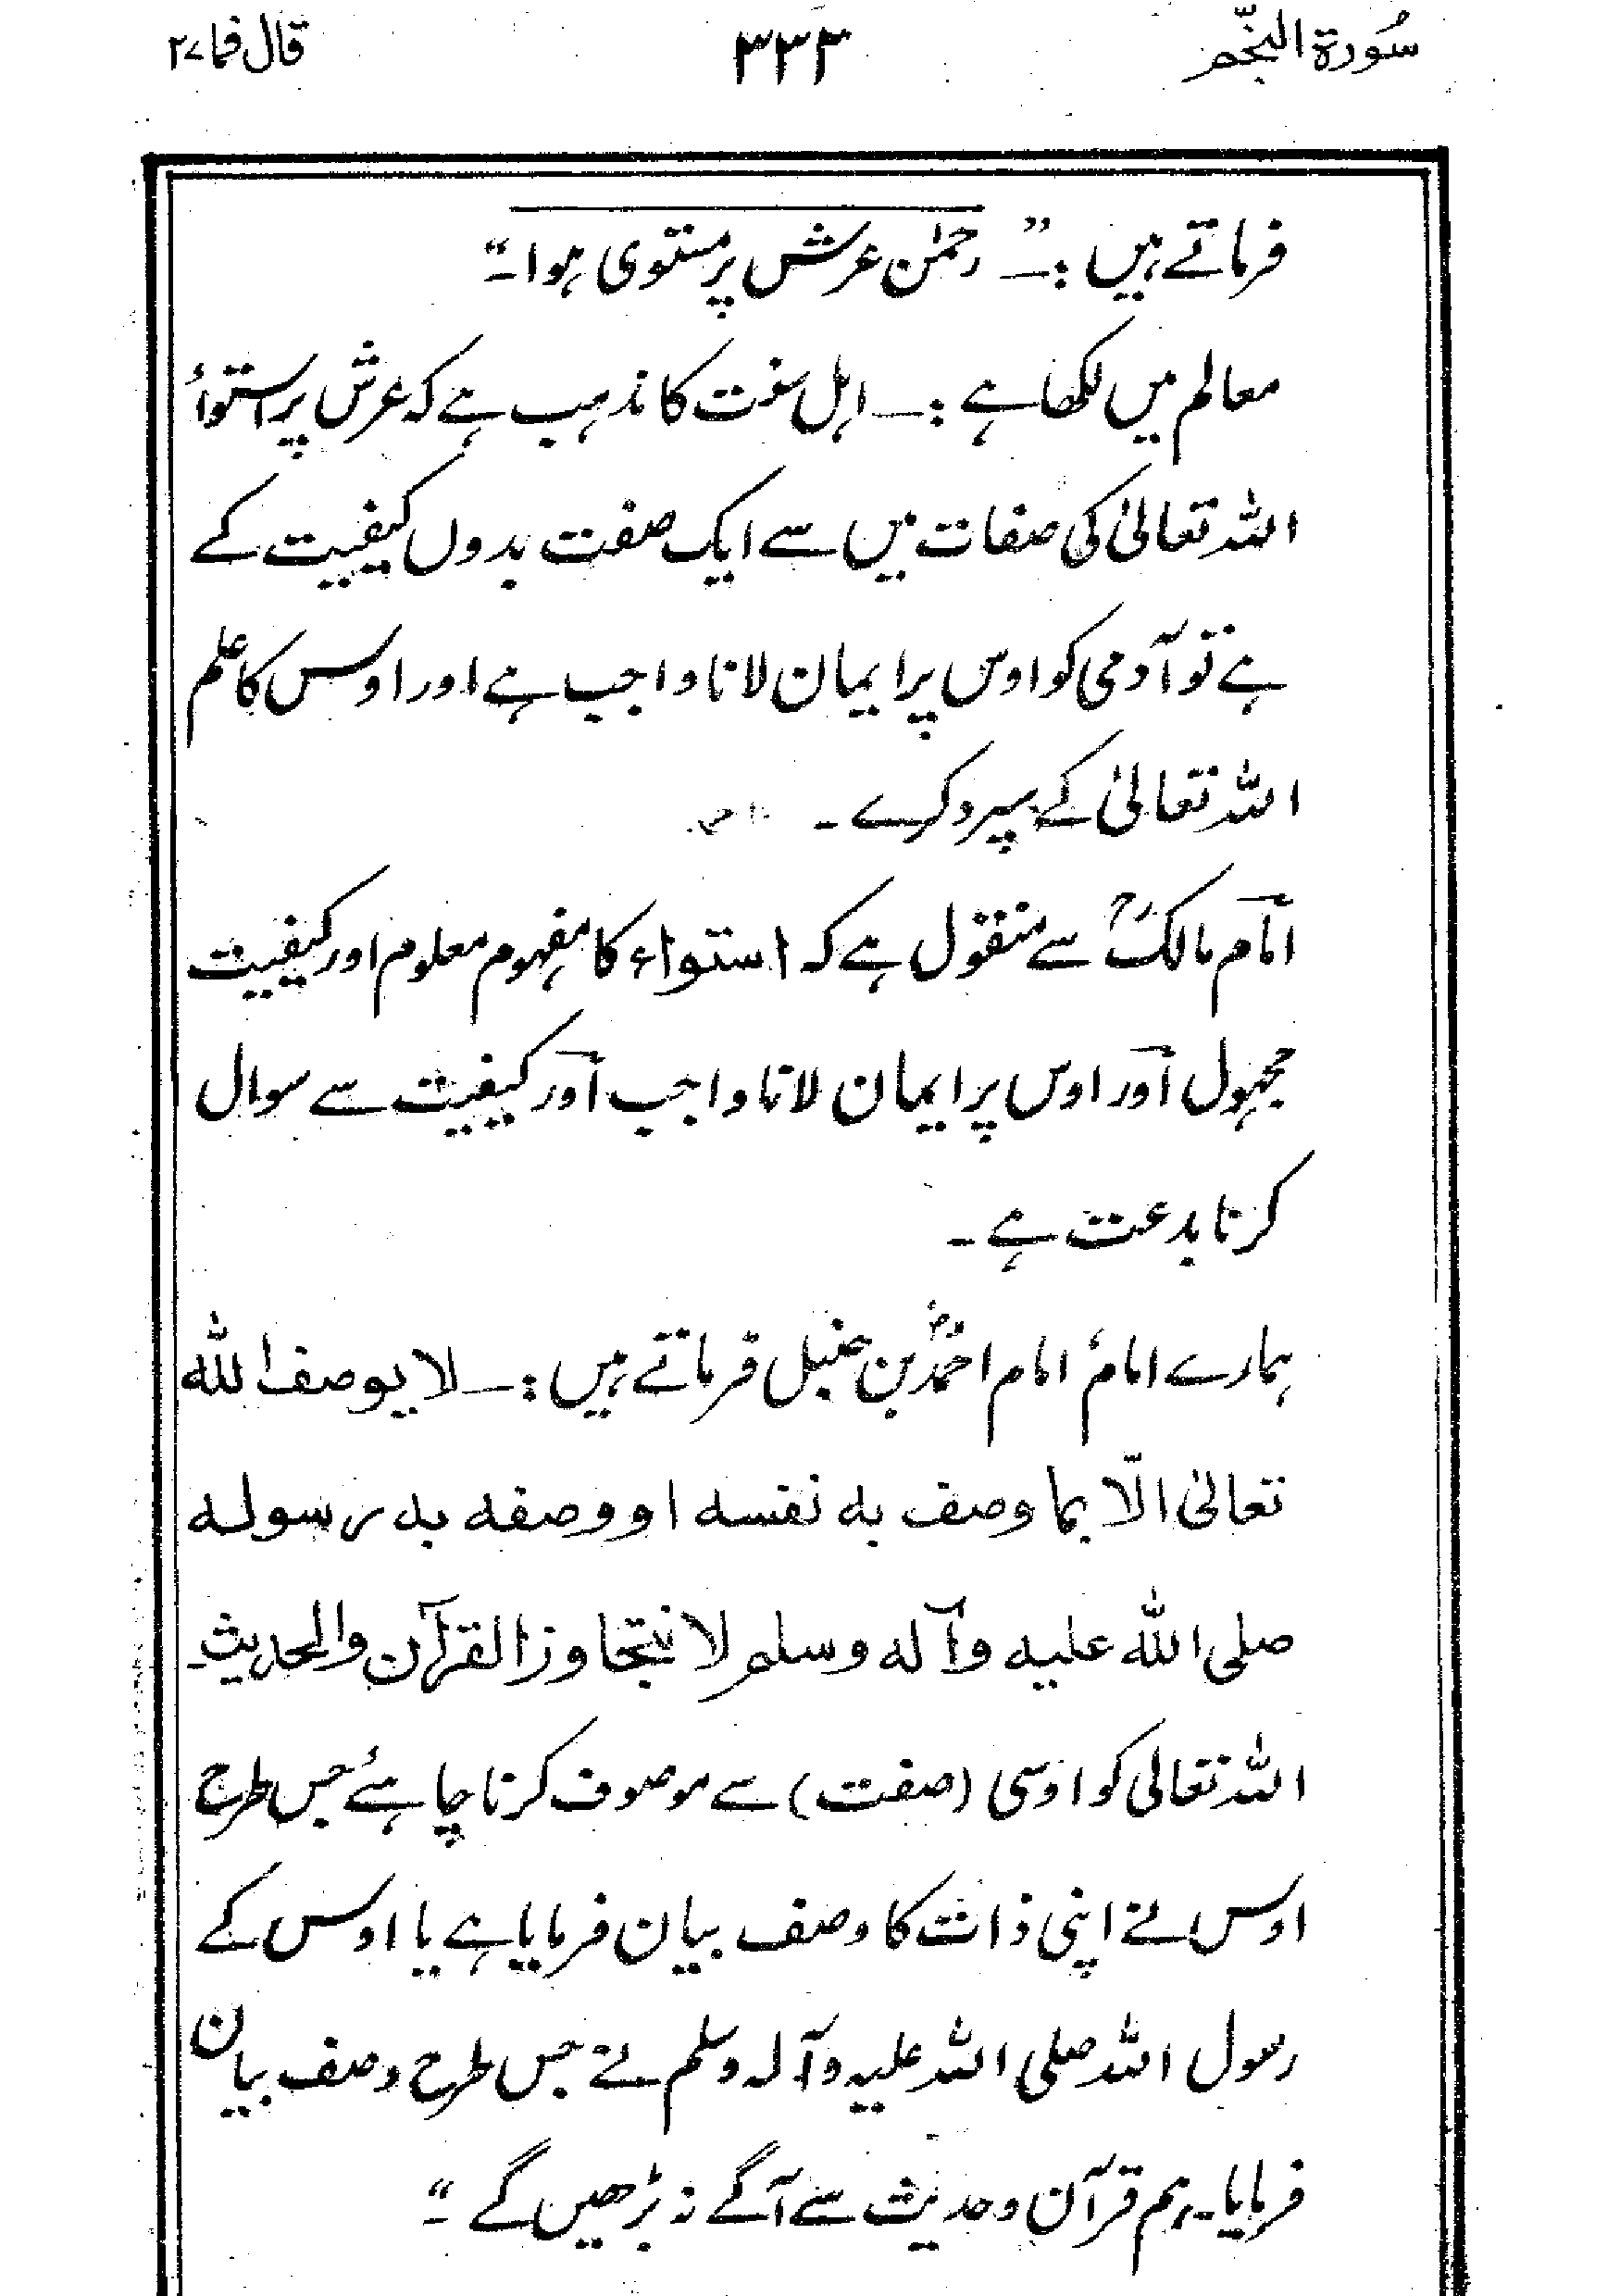 سُورة النجّم ۳۳۳ قال فما ۲۷
فرماتے ہیں :— ” رحمٰن عرش پر مستوی ہوا۔“
معالم میں لکھا ہے :— اہل سنت کا مذہب ہے کہ عرش پر استواءُ
اللہ تعالیٰ کی صفات میں سے ایک صفت بدوں کیفیت کے
ہے تو آدمی کو اوس پر ایمان لانا واجب ہے اور اوس کا علم
اللہ تعالیٰ کے سپرد کرے ۔
امام مالکؒ سے منقول ہے کہ استواء کا مفہوم معلوم اور کیفیت
مجہول اور اوس پر ایمان لانا واجب اور کیفیت سے سوال
کرنا بدعت ہے ۔
ہمارے امامؑ امام احمدؒ بن حنبل فرماتے ہیں :— لا یوصف اللہ
تعالیٰ الّا بما وصف بہ نفسہ او وصفہ بہ رسولہ
صلی اللہ علیہ وآلہ وسلم لا نتجاوز القرآن والحدیث۔
اللہ تعالی کو اوسی (صفت) سے موصوف کرنا چاہئے جس طرح
اوس نے اپنی ذات کا وصف بیان فرمایا ہے یا اوس کے
رسول اللہ صلی اللہ علیہ وآلہ وسلم نے جس طرح وصف بیان
فرمایا۔ ہم قرآن و حدیث سے آگے نہ بڑھیں گے ۔“